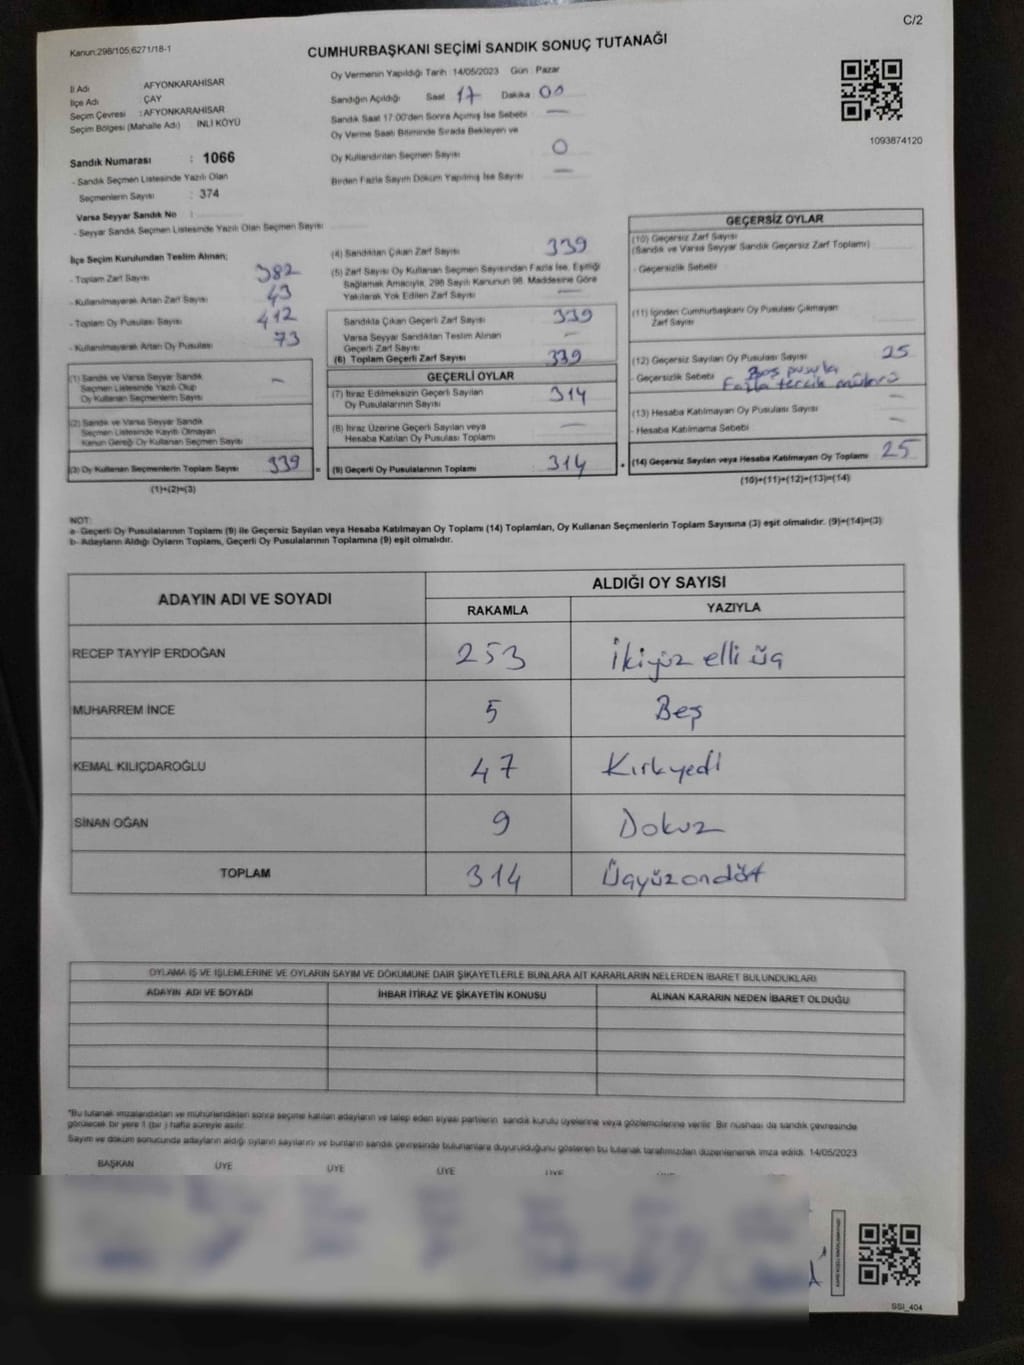 C/2
Kanun:298/105;6271/18-1
CUMHURBAŞKANI SEÇİMİ SANDIK SONUÇ TUTANAĞI
İl Adı AFYONKARAHİSAR
İlçe Adı ÇAY
Seçim Çevresi : AFYONKARAHİSAR
Seçim Bölgesi (Mahalle Adı) İNLİ KÖYÜ
Sandık Numarası : 1066
- Sandık Seçmen Listesinde Yazılı Olan
Seçmenlerin Sayısı : 374
Varsa Seyyar Sandık No :
- Seyyar Sandık Seçmen Listesinde Yazılı Olan Seçmen Sayısı
Oy Vermenin Yapıldığı Tarih : 14/05/2023 Gün : Pazar
Sandığın Açıldığı Saat 17 Dakika 00
Sandık Saat 17:00'den Sonra Açılmış İse Sebebi —
Oy Verme Saati Bitiminde Sırada Bekleyen ve
Oy Kullandırılan Seçmen Sayısı 0
Birden Fazla Sayım Döküm Yapılmış İse Sayısı —
1093874120
İlçe Seçim Kurulundan Teslim Alınan;
- Toplam Zarf Sayısı 382
- Kullanılmayarak Artan Zarf Sayısı 43
- Toplam Oy Pusulası Sayısı 412
- Kullanılmayarak Artan Oy Pusulası 73
(1) Sandık ve Varsa Seyyar Sandık
Seçmen Listesinde Yazılı Olup
Oy Kullanan Seçmenlerin Sayısı —
(2) Sandık ve Varsa Seyyar Sandık
Seçmen Listesinde Kayıtlı Olmayan
Kanun Gereği Oy Kullanan Seçmen Sayısı
(3) Oy Kullanan Seçmenlerin Toplam Sayısı 339 =
(1)+(2)=(3)
(4) Sandıktan Çıkan Zarf Sayısı 339
(5) Zarf Sayısı Oy Kullanan Seçmen Sayısından Fazla İse, Eşitliği
Sağlamak Amacıyla, 298 Sayılı Kanunun 98. Maddesine Göre
Yakılarak Yok Edilen Zarf Sayısı —
Sandıkta Çıkan Geçerli Zarf Sayısı 339
Varsa Seyyar Sandıktan Teslim Alınan
Geçerli Zarf Sayısı —
(6) Toplam Geçerli Zarf Sayısı 339
GEÇERLİ OYLAR
(7) İtiraz Edilmeksizin Geçerli Sayılan
Oy Pusulalarının Sayısı 314
(8) İtiraz Üzerine Geçerli Sayılan veya
Hesaba Katılan Oy Pusulası Toplamı —
(9) Geçerli Oy Pusulalarının Toplamı 314 +
GEÇERSİZ OYLAR
(10) Geçersiz Zarf Sayısı
(Sandık ve Varsa Seyyar Sandık Geçersiz Zarf Toplamı)
- Geçersizlik Sebebi
(11) İçinden Cumhurbaşkanı Oy Pusulası Çıkmayan
Zarf Sayısı
(12) Geçersiz Sayılan Oy Pusulası Sayısı 25
- Geçersizlik Sebebi Boş pusula
Fazla tercih mührü
(13) Hesaba Katılmayan Oy Pusulası Sayısı —
- Hesaba Katılmama Sebebi —
(14) Geçersiz Sayılan veya Hesaba Katılmayan Oy Toplamı 25
(10)+(11)+(12)+(13)=(14)
NOT:
a- Geçerli Oy Pusulalarının Toplamı (9) ile Geçersiz Sayılan veya Hesaba Katılmayan Oy Toplamı (14) Toplamları, Oy Kullanan Seçmenlerin Toplam Sayısına (3) eşit olmalıdır. (9)+(14)=(3)
b- Adayların Aldığı Oyların Toplamı, Geçerli Oy Pusulalarının Toplamına (9) eşit olmalıdır.
ADAYIN ADI VE SOYADI
ALDIĞI OY SAYISI
RAKAMLA YAZIYLA
RECEP TAYYİP ERDOĞAN 253 İkiyüz elli üç
MUHARREM İNCE 5 Beş
KEMAL KILIÇDAROĞLU 47 Kırkyedi
SİNAN OĞAN 9 Dokuz
TOPLAM 314 Üçyüzondört
OYLAMA İŞ VE İŞLEMLERİNE VE OYLARIN SAYIM VE DÖKÜMÜNE DAİR ŞİKAYETLERLE BUNLARA AİT KARARLARIN NELERDEN İBARET BULUNDUKLARI
ADAYIN ADI VE SOYADI İHBAR İTİRAZ VE ŞİKAYETİN KONUSU ALINAN KARARIN NEDEN İBARET OLDUĞU
*Bu tutanak imzalandıktan ve mühürlendikten sonra seçime katılan adayların ve talep eden siyasi partilerin sandık kurulu üyelerine veya gözlemcilerine verilir. Bir nüshası da sandık çevresinde
görülecek bir yere 1 (bir ) hafta süreyle asılır.
Sayım ve döküm sonucunda adayların aldığı oyların sayılarını ve bunların sandık çevresinde bulunanlara duyurulduğunu gösteren bu tutanak tarafımızdan düzenlenerek imza edildi. 14/05/2023
BAŞKAN ÜYE ÜYE ÜYE ÜYE
SSI_404